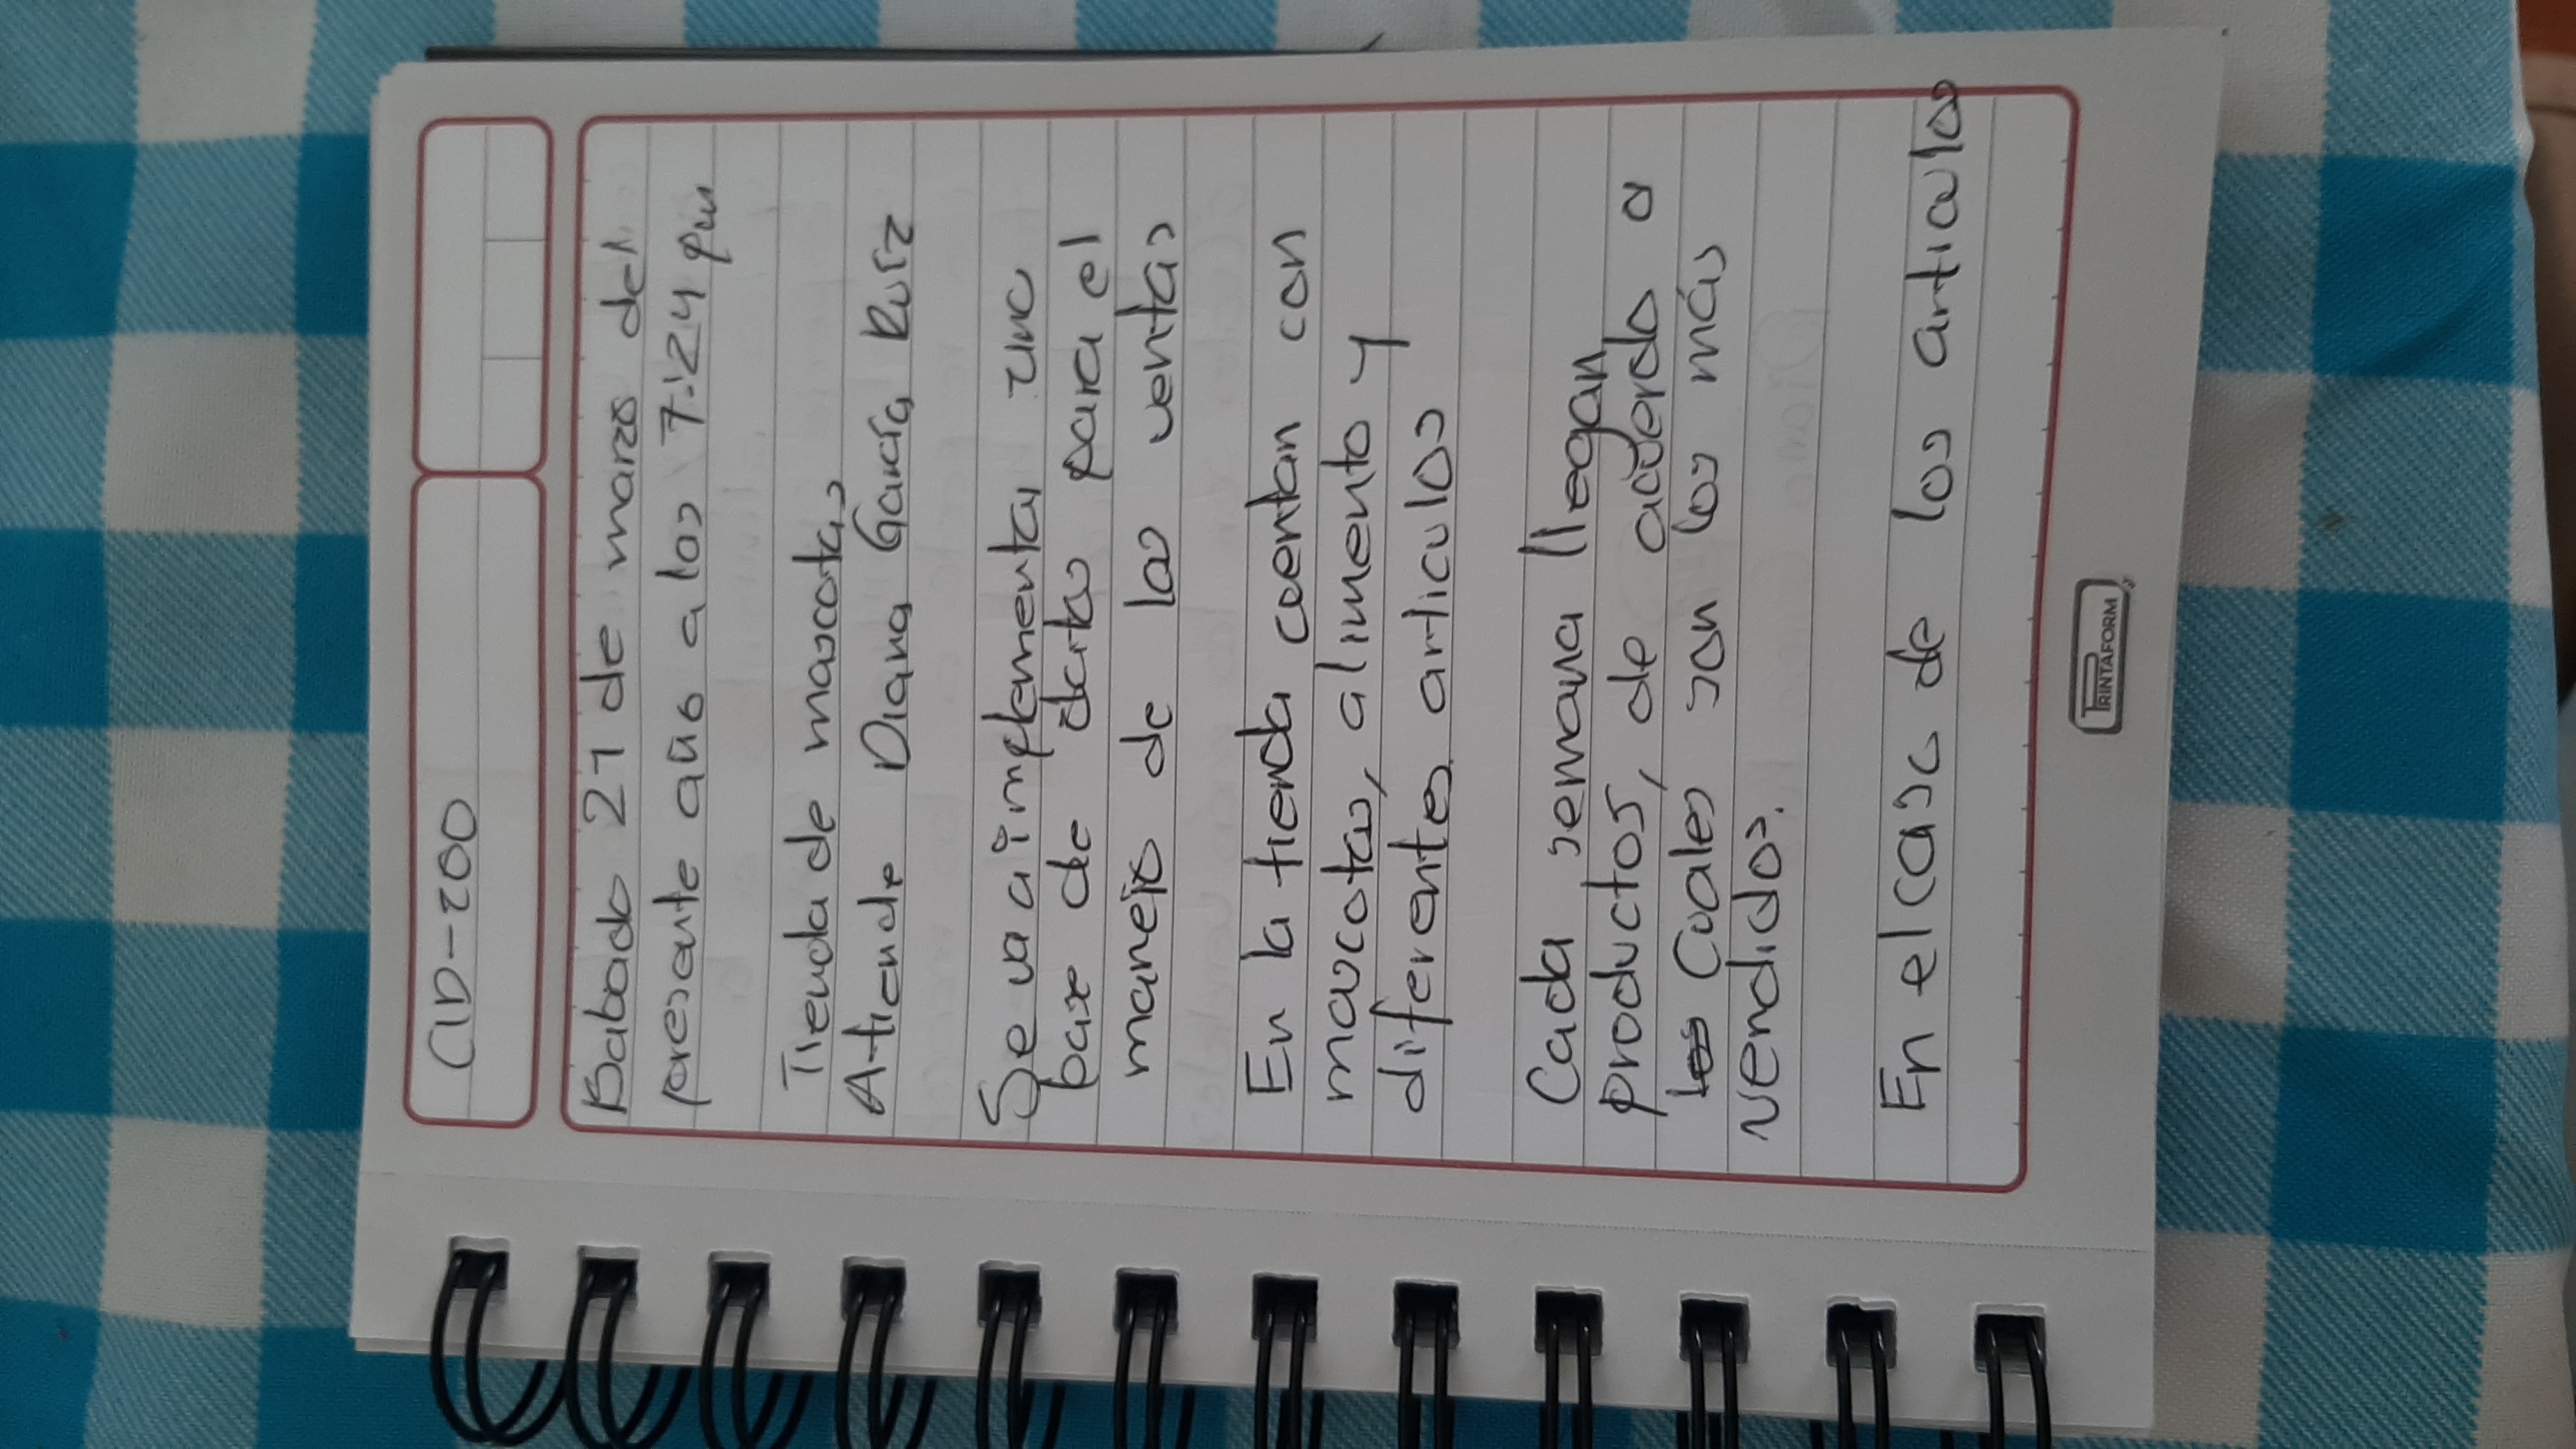 CID-200
Sabado 21 de marzo del
presente año a las 7:24 pm
Tienda de mascotas
Atiende Diana García Ruíz
Se va a implementar una
base de datos para el
manejo de las ventas
En la tienda cuentan con
mascotas, alimento y
diferentes articulos
Cada semana llegan
productos, de acuerdo a
los cuales son los más
vendidos.
En el caso de los articulos
PRINTAFORM